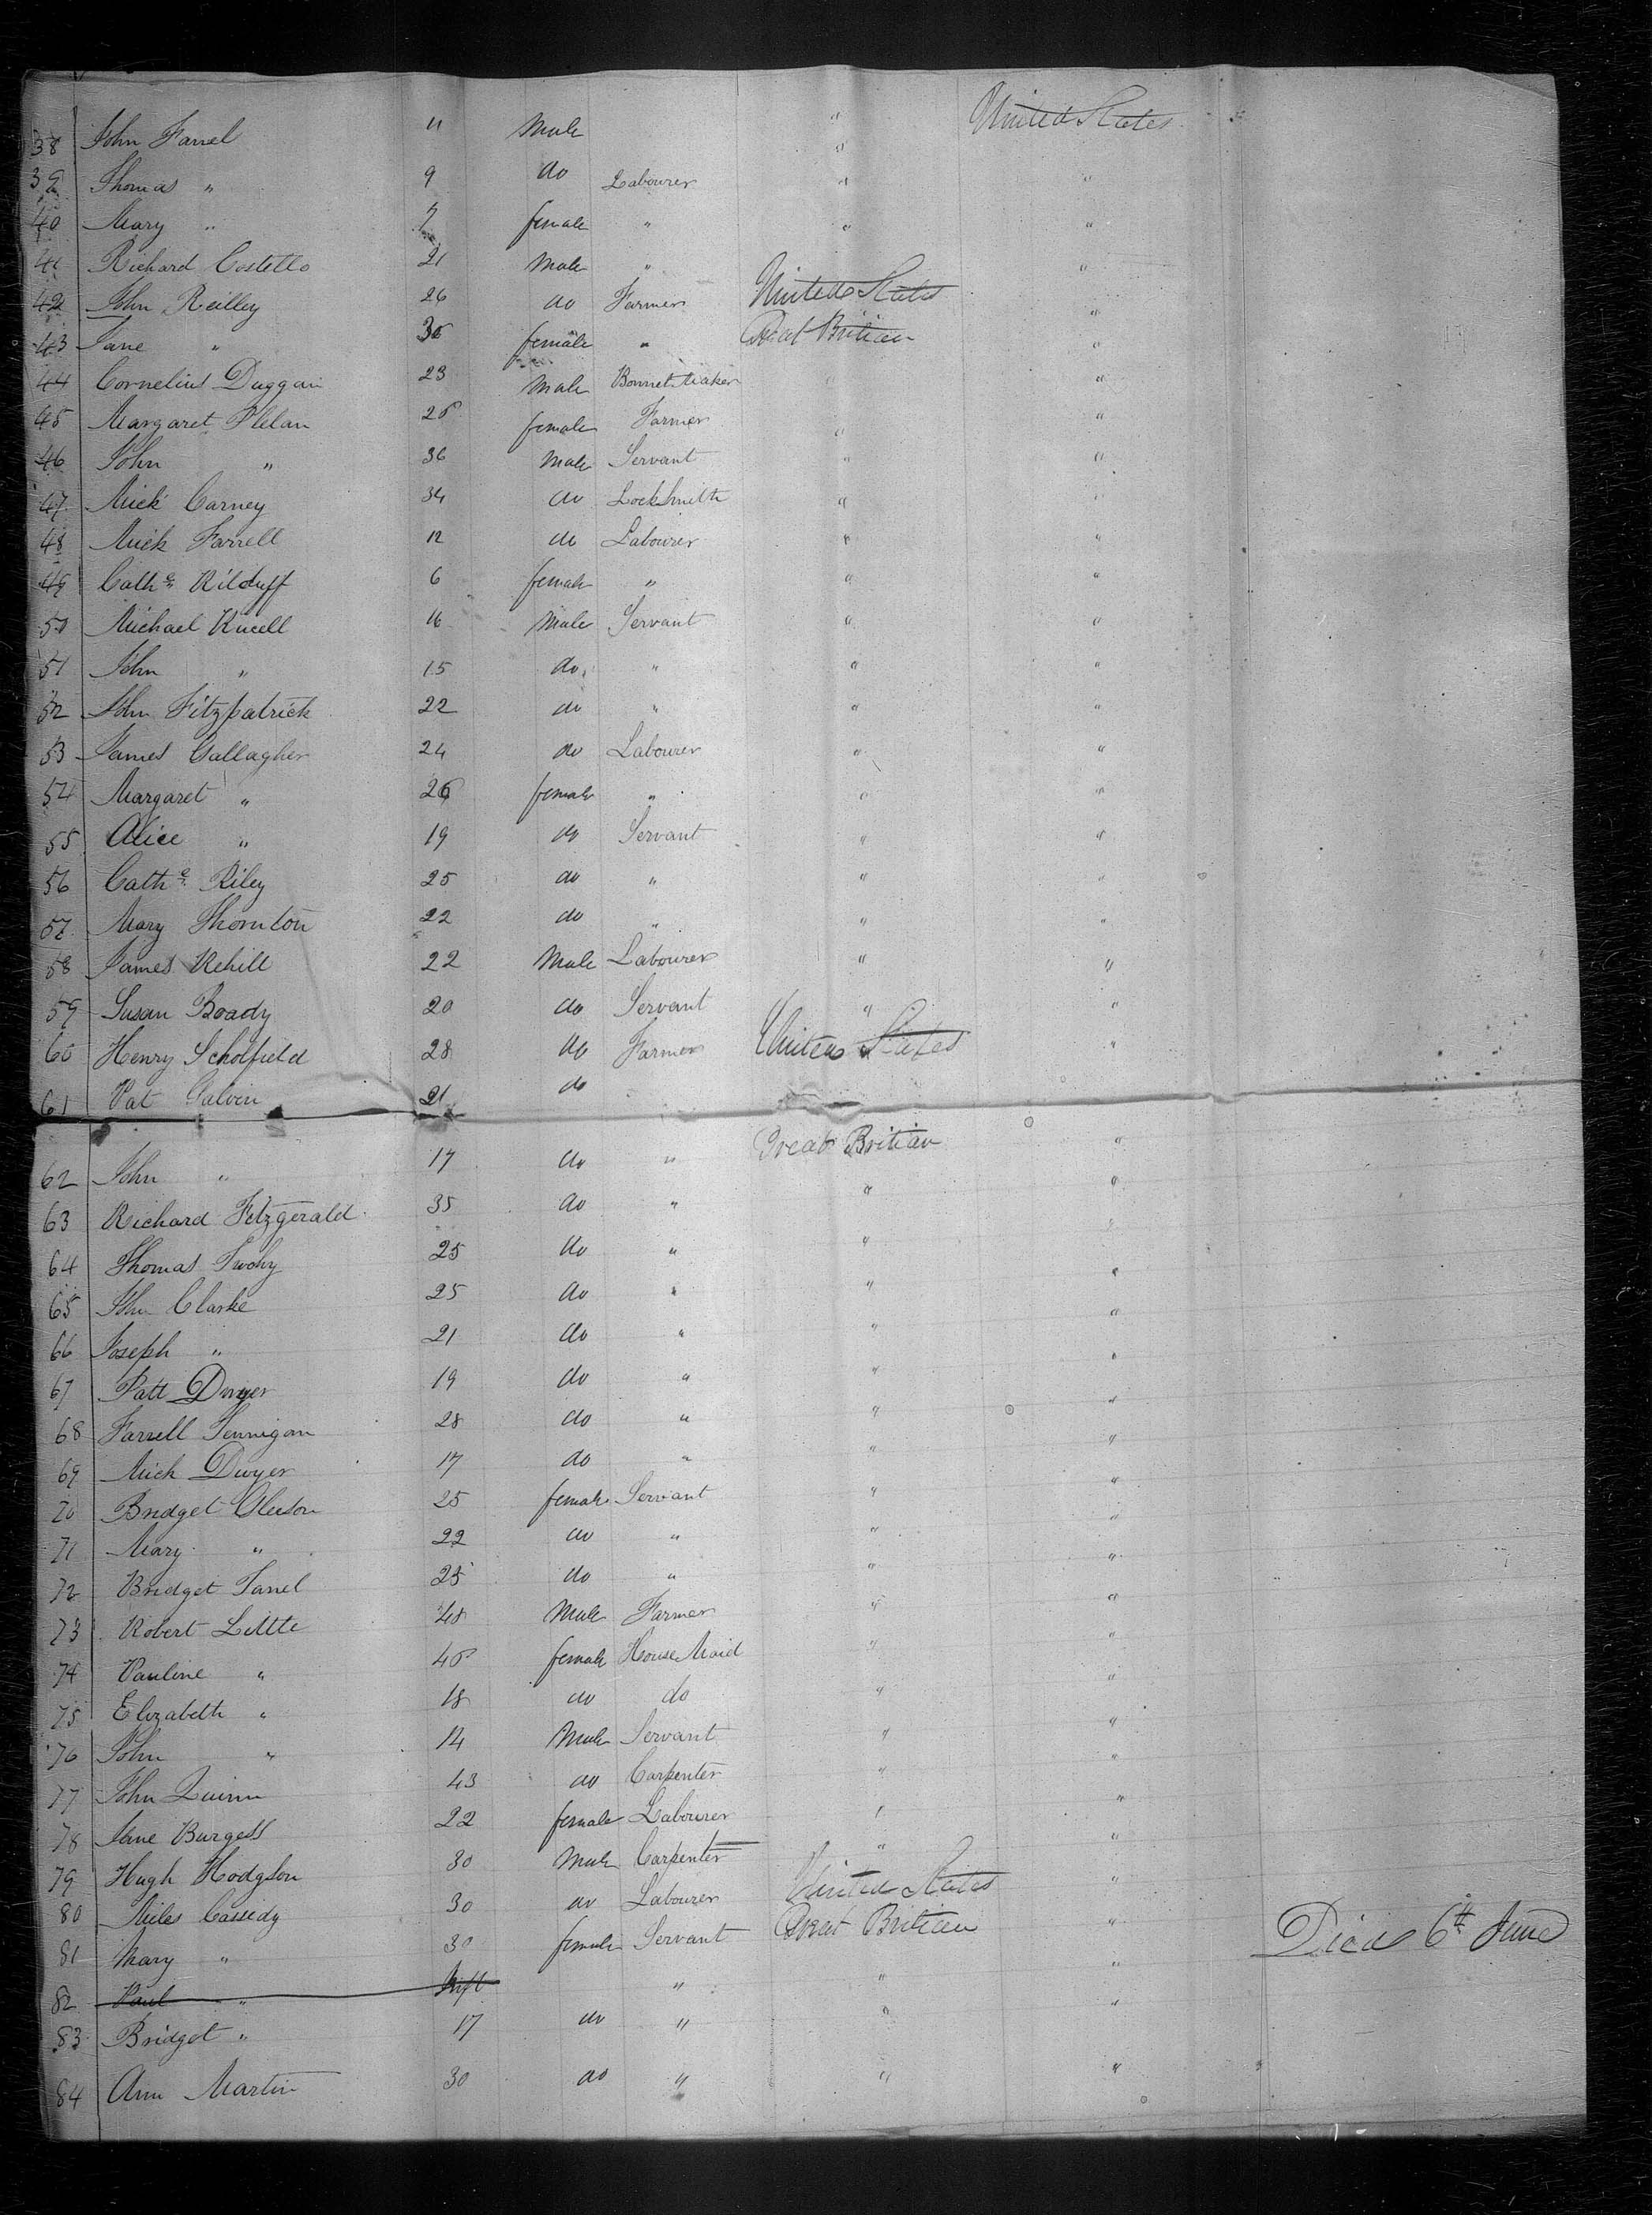 38 John Farrel 11 Male " United States
39 Thomas " 9 do Labourer " "
40 Mary " 7 female " " "
41 Richard Costello 21 Male " "
42 John Reilley 26 do Farmer United States "
43 Jane " 30 female " Great Britian "
44 Cornelius Duggan 23 Male Bonnet Maker " "
45 Margaret Phelan 25 female Farmer " "
46 John " 36 Male Servant " "
47 Mick Carney 34 do LockSmith " "
48 Mick Farrell 12 do Labourer " "
49 Cathe Kilduff 6 female " " "
50 Michael 16 Male Servant " "
51 John " 15 do " " "
52 John Fitzpatrick 22 do " " "
53 James Gallagher 24 do Labourer " "
54 Margaret " 26 female " " "
55 Alice " 19 do Servant " "
56 Cathe Riley 25 do " " "
57 Mary Thornton 22 do " " "
58 James Kehill 22 Male Labourer " "
59 Susan Boady 20 do Servant " "
60 Henry Scholfield 28 do Farmer United States "
61 Pat Galvin 21 do
62 John " 17 do " Great Britian "
63 Richard Fitzgerald 35 do " " "
64 Thomas Twohy 25 do " " "
65 John Clarke 25 do " " "
66 Joseph " 21 do " " "
67 Patt Dwyer 19 do " " "
68 Farrell Fennigan 28 do " " "
69 Mich Dwyer 17 do " " "
70 Bridget Gleeson 25 female Servant " "
71 Mary " 22 do " " "
72 Bridget 25 do " " "
73 Robert Little 48 Male Farmer " "
74 Pauline " 45 female House Maid " "
75 Elizabeth " 18 do do " "
76 John " 14 Male Servant " "
77 John Quinn 43 do Carpenter " "
78 Jane Burgess 22 female Labourer " "
79 Hugh Hodgson 30 Male Carpenter " "
80 Miles Cassedy 30 do Labourer United States "
81 Mary " 30 female Servant Great Britian " Died 6th June
82 Paul " Inft " " "
83 Bridget " 17 do " " "
84 Ann Martin 30 do " " "